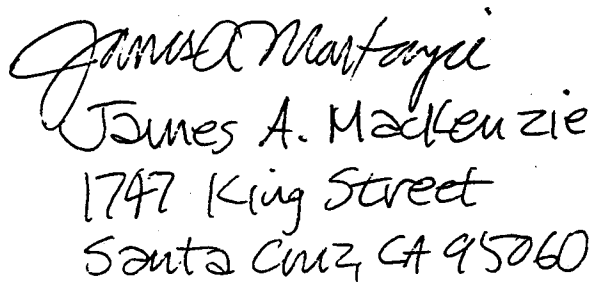 James A MacKenzie
James A. MacKenzie
1747 King Street
Santa Cruz, CA 95060